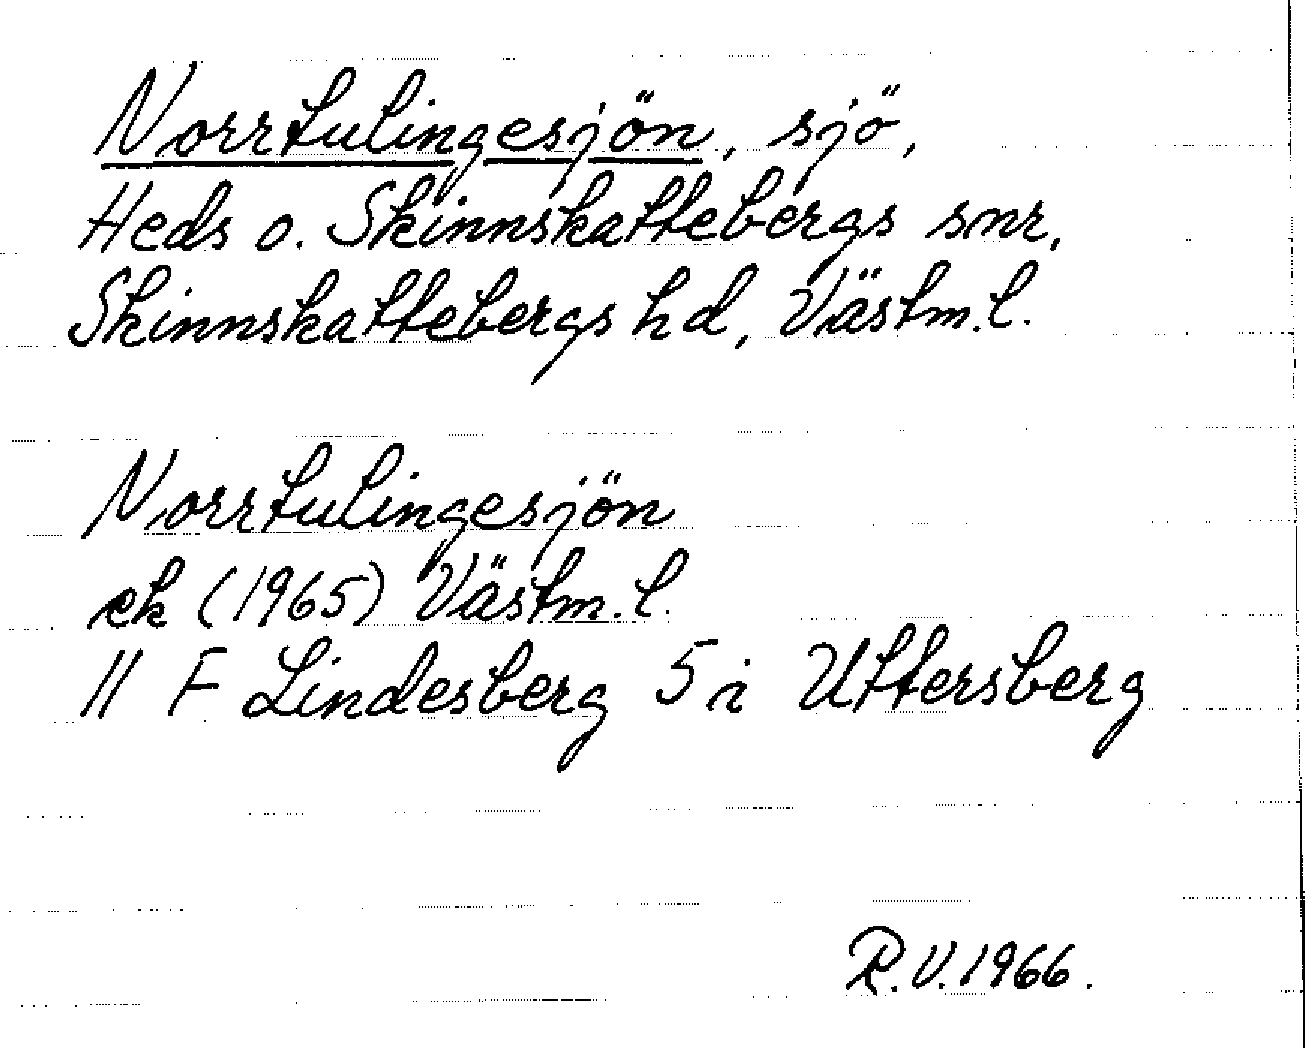 Norrtulingesjön, sjö,
Heds o. Skinnskattebergs snr,
Skinnskattebergs hd, Västm. l.
Norrtulingesjön
ek (1965) Västm. l.
11 F Lindesberg 5 i Uttersberg
R.V. 1966.